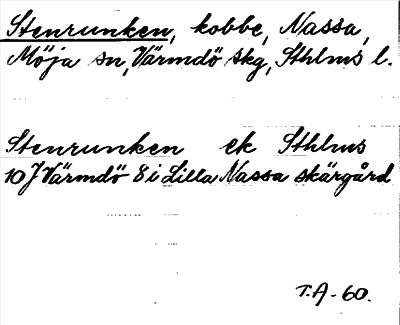 Stenrunken, kobbe, Nassa,
Möja sn, Värmdö skg, Sthlms l.
Stenrunken ek Sthlms
10 J Värmdö 8 i Lilla Nassa skärgård
T.A-60.